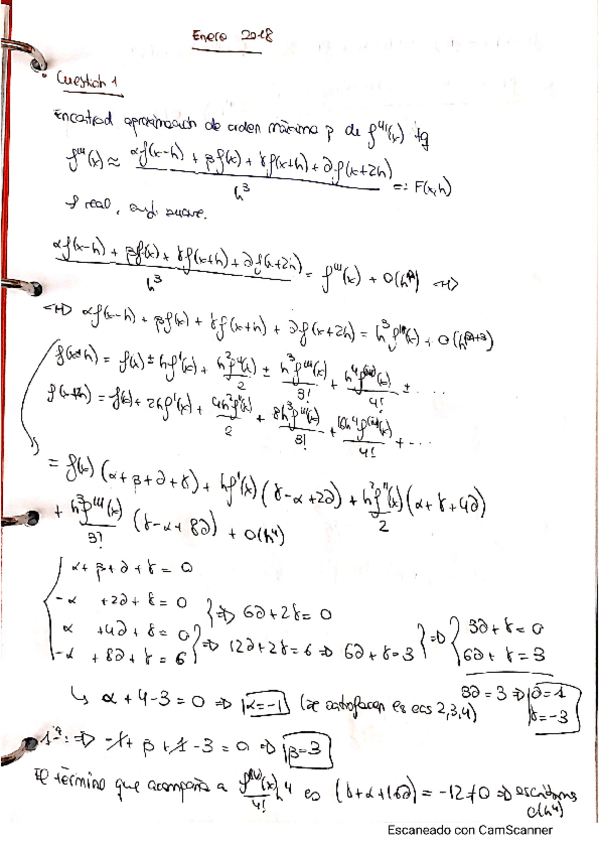 Enero 2018
Cuestión 1
Encontrad aproximación de orden máximo p de f'''(x) tq
f'''(x) ≈ αf(x-h) + βf(x) + γf(x+h) + ∂f(x+2h) / h³ =: F(x,h)
f real, suave.
αf(x-h) + βf(x) + γf(x+h) + ∂f(x+2h) / h³ = f'''(x) + O(hᵖ) <=>
<=> αf(x-h) + βf(x) + γf(x+h) + ∂f(x+2h) = h³f'''(x) + O(hᵖ⁺³)
f(x±h) = f(x) ± hf'(x) + h²f''(x)/2 ± h³f'''(x)/3! + h⁴f⁽ⁱᵛ⁾(x)/4! ± ...
f(x+2h) = f(x) + 2hf'(x) + 4h²f''(x)/2 + 8h³f'''(x)/3! + 16h⁴f⁽ⁱᵛ⁾(x)/4! + ...
= f(x) (α+β+∂+γ) + hf'(x) (γ-α+2∂) + h²f''(x)/2 (α+γ+4∂)
+ h³f'''(x)/3! (γ-α+8∂) + O(h⁴)
α+β+∂+γ = 0
-α +2∂+γ = 0 } => 6∂+2γ = 0
α +4∂+γ = 0 } => 12∂+2γ = 6 => 6∂+γ = 3 } => { 3∂+γ = 0
-α +8∂+γ = 6 6∂+γ = 3
3∂ = 3 => ∂=1
γ=-3
↳ α+4-3 = 0 => α=-1 (se satisfacen es ecs 2,3,4)
1ª: => -1 + β + 1 - 3 = 0 => β=3
El término que acompaña a f⁽ⁱᵛ⁾(x)h⁴/4! es (γ+α+16∂) = -12 ≠ 0 =>
O(h⁴)
Escaneado con CamScanner